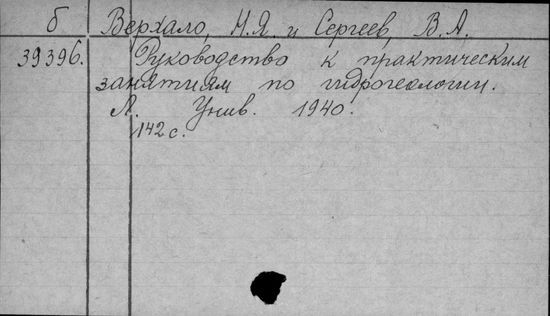 б Верхало, Н.Я. и Сергеев, В.А.
39396. Руководство к практическим
занятиям по гидрогеологии.
Л. Унив. 1940.
142 с.